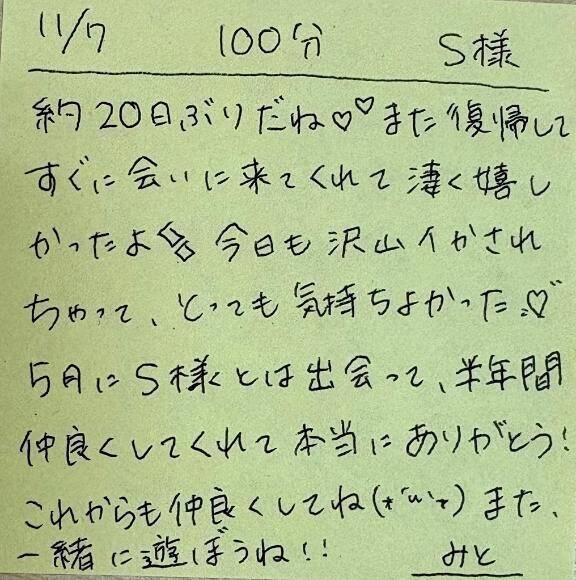 11/7 100分 S様
約20日ぶりだね♡♡また復帰して
すぐに会いに来てくれて凄く嬉し
かったよ 今日も沢山イかされ
ちゃって、とっても気持ちよかった♡
5月にS様とは出会って、半年間
仲良くしてくれて本当にありがとう!
これからも仲良くしてね(*´ω`*)また、
一緒に遊ぼうね!!
みと